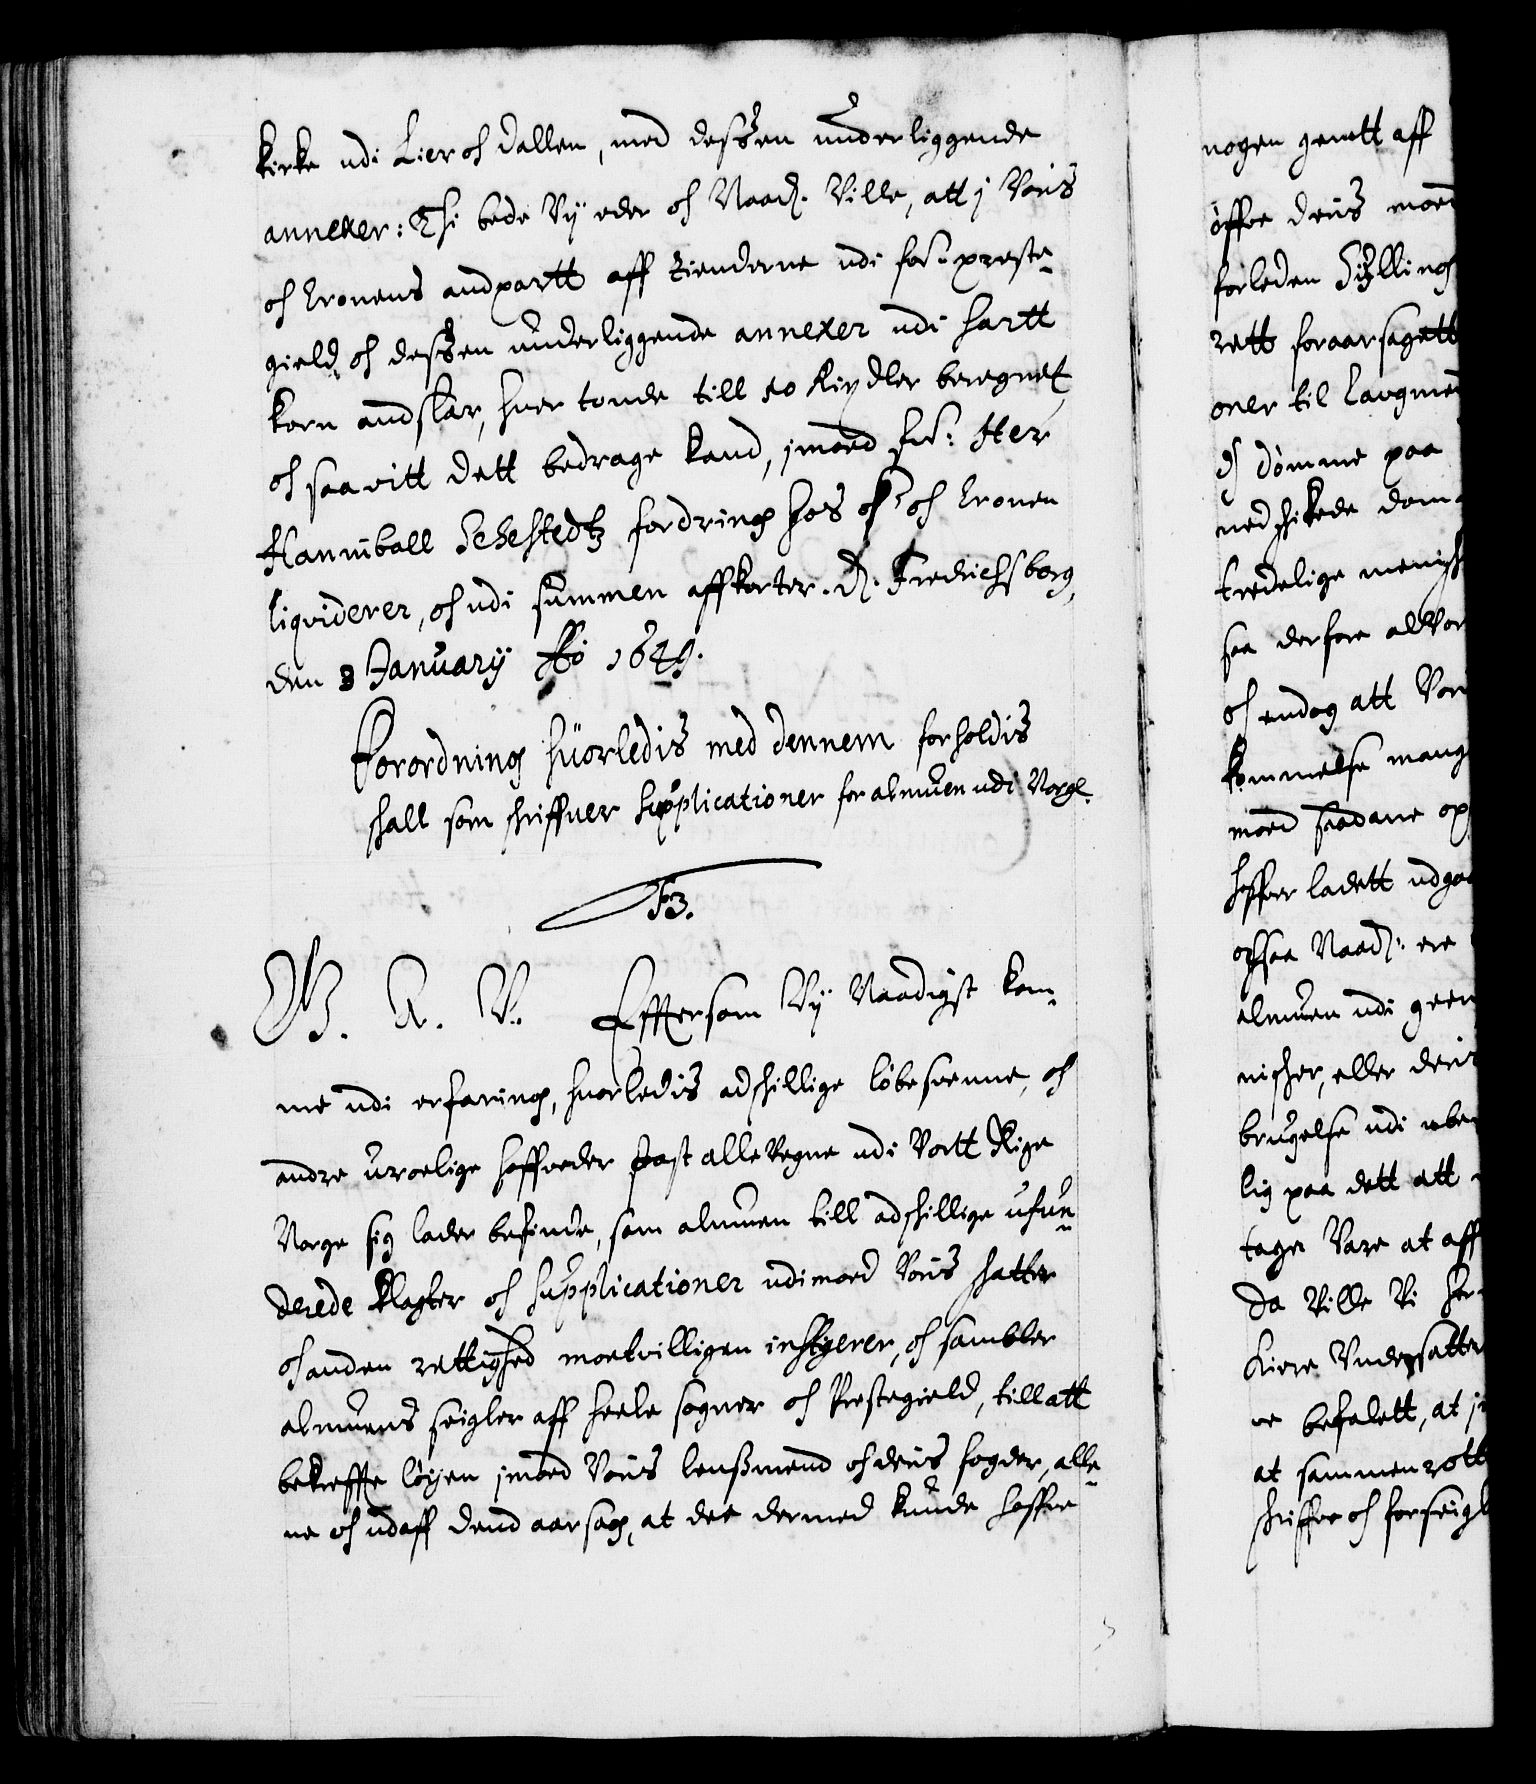 kirke udi Lier och dallen, med dessen underliggende
annexer: Thi bede Vy eder och Naad. Ville, att i Voris
och Cronens andpartt aff tienderne udi forn: preste¬
gield, och dessen underliggende annexer udi hartt
korn anslar, huer tønde till 40 Rixdlr beregnet,
och saavitt dett bedrage kand, imoed forn: Her
Hanniball Sehestedtz fordring hos oss och Cronen
liqviderer, och udi summen affkorter. D. Fredrichsborg,
den 3 January Ao 1649.
Forordning huorledis med dennem forholdis
skall som skriffuer supplicationer for almuen udi Norge.
F3.
G. A. V. Effttersom Vy Naadigst kom¬
me udi erfaring, huorledis adskillige løbesvenne, och
andre uroelige hoffveder fast alle Vegne udi Vortt Rige
Norge sig lader befinde, som almuen till adskillige ufun¬
derede klagter och supplicationer udimoed Voris skatter
och anden rettighed moetvilligen instigerer, och sambler
almuens seigler aff heele sogner och Prestegield, till att
bekreffte løgen imoed Voris lensmend och deris fogder, alle¬
ne och udaff dend aarsag, at de dermed kunde haffve
nogen genott aff
øffve deris moed
forleden Sylling
rett foraarsagett
oner til Laugmen
dømme paa
nedskikede dom
tredelige menisch
saa derfore alvor
och endog att Vor
kommelse mang
moed saadane op
haffver ladett udgaa
ochsaa Naad: ere
almuen udi geen
nischer, eller deris
brugelse udi ube
lig paa dett att
tage Vare at aff
Da Ville Vi her
Kiere Undersatter
ne befalett, at
at sammenrott
skriffve och forseigl